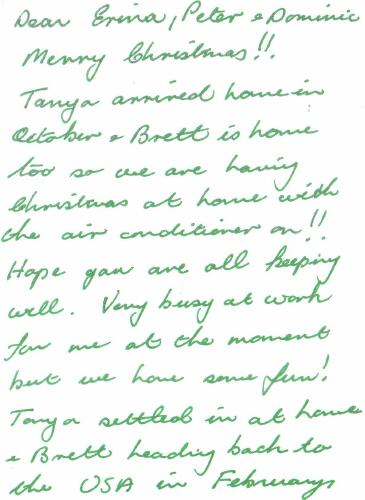 Dear Erina, Peter & Dominic
Merry Christmas!!
Tanya arrived home in
October & Brett is home
too so we are having
Christmas at home with
the air conditioner on!!
Hope you are all keeping
well. Very busy at work
for me at the moment
but we have some fun!
Tanya settled in at home
& Brett heading back to
the USA in February